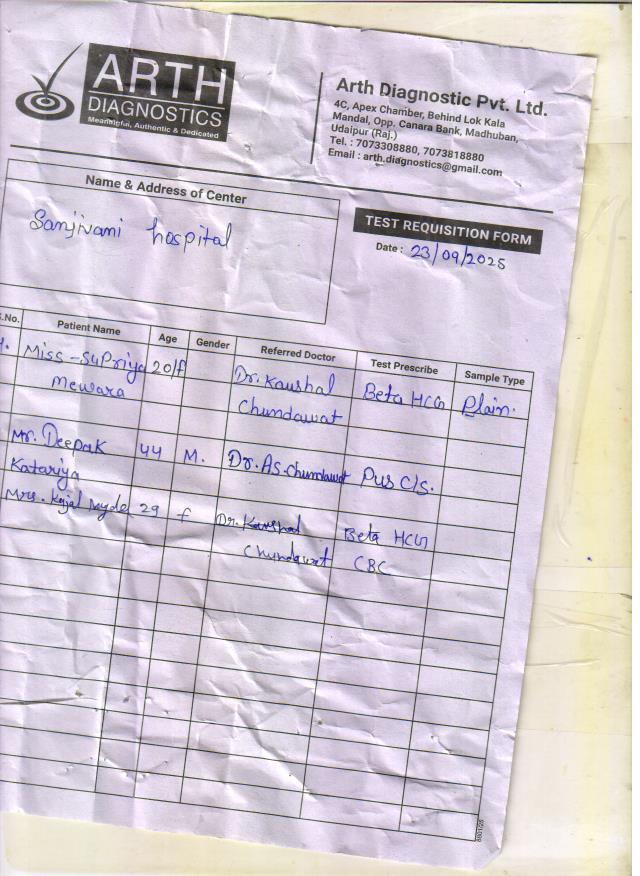 ARTH
DIAGNOSTICS
Meaningful, Authentic & Dedicated
Arth Diagnostic Pvt. Ltd.
4C, Apex Chamber, Behind Lok Kala
Mandal, Opp. Canara Bank, Madhuban,
Udaipur (Raj.)
Tel. : 7073308880, 7073818880
Email : arth.diagnostics@gmail.com
Name & Address of Center
Sanjivani hospital
TEST REQUISITION FORM
Date : 23/09/2025
S.No. Patient Name Age Gender Referred Doctor Test Prescribe Sample Type
Miss - Supriya 20/f Dr. Kaushal Beta HCG Plain.
Mewara Chundawat
Mr. Deepak 44 M. Dr. A.S. Chundawat Pus C/S.
Katariya
Mrs. Kajal 29 f Dr. Kaushal Beta HCG
Chundawat CBC